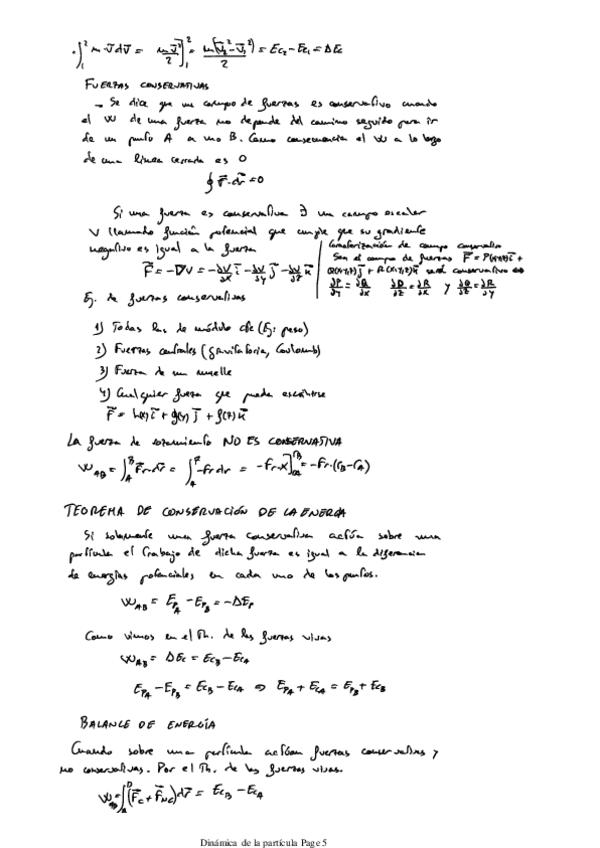 • ∫₁² m·v̄ dv̄ = m v̄²/2 ]₁² = m(v̄₂² − v̄₁²)/2 = Ec₂ − Ec₁ = ΔEc
FUERZAS CONSERVATIVAS
→ Se dice que un campo de fuerzas es conservativo cuando
el W de una fuerza no depende del camino seguido para ir
de un punto A a uno B. Como consecuencia el W a lo largo
de una línea cerrada es 0
∮ F̄·dr̄ = 0
Si una fuerza es conservativa ∃ un campo escalar
V llamado función potencial que cumple que su gradiente
negativo es igual a la fuerza
F̄ = −∇V = −∂V/∂x ī − ∂V/∂y j̄ − ∂V/∂z k̄
Caracterización de campo conservativo
Sea el campo de fuerzas F̄ = P(x,y,z) ī +
Q(x,y,z) j̄ + R(x,y,z) k̄ será conservativo ⇔
∂P/∂y = ∂Q/∂x ∂P/∂z = ∂R/∂x y ∂Q/∂z = ∂R/∂y
Ej. de fuerzas conservativas
1) Todas las de módulo cte (Ej: peso)
2) Fuerzas centrales (gravitatoria, Coulomb)
3) Fuerza de un muelle
4) Cualquier fuerza que pueda escribirse
F̄ = h(x) ī + g(y) j̄ + f(z) k̄
La fuerza de rozamiento NO ES CONSERVATIVA
W_AB = ∫_A^B F̄r dr̄ = ∫_A^B −Fr dr = −Fr·x ] = −Fr·(r_B − r_A)
TEOREMA DE CONSERVACIÓN DE LA ENERGÍA
Si solamente una fuerza conservativa actúa sobre una
partícula el trabajo de dicha fuerza es igual a la diferencia
de energías potenciales en cada uno de los puntos.
W_AB = Ep_A − Ep_B = −ΔEp
Como vimos en el Th. de las fuerzas vivas
W_AB = ΔEc = Ec_B − Ec_A
Ep_A − Ep_B = Ec_B − Ec_A ⇒ Ep_A + Ec_A = Ep_B + Ec_B
BALANCE DE ENERGÍA
Cuando sobre una partícula actúan fuerzas conservativas y
no conservativas. Por el Th. de las fuerzas vivas.
W_AB = ∫_A^B (F̄c + F̄nc) dr̄ = Ec_B − Ec_A
Dinámica de la partícula Page 5